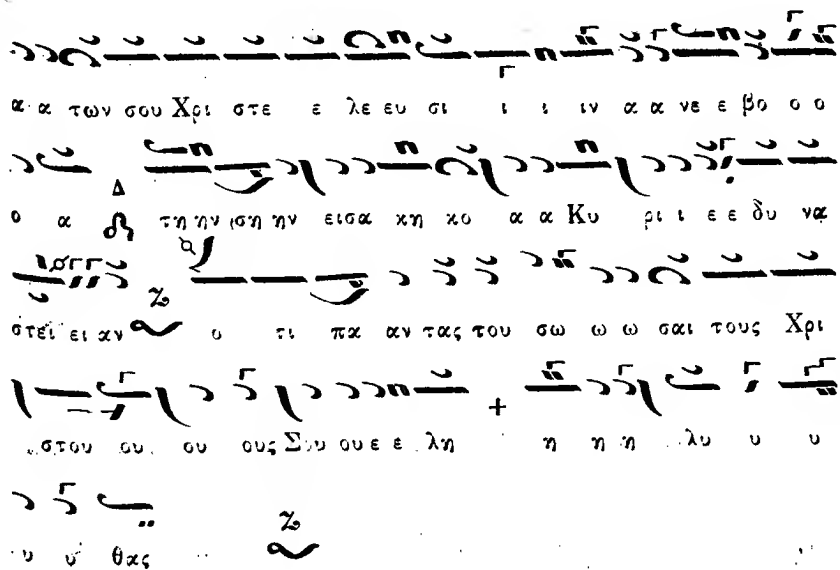 α α των σου Χρι στε ε λε ευ σι ι ι ιν α α νε ε βο ο ο
Δ
ο α τη ην ση ην εισα κη κο α α Κυ ρι ι ε ε δυ να
Ζ
στει ει αν ο τι πα αν τας του σω ω ω σαι τους Χρι
στον ου ου ους Σου ου ε ε λη η η η λυ υ υ
Ζ
υ υ θας